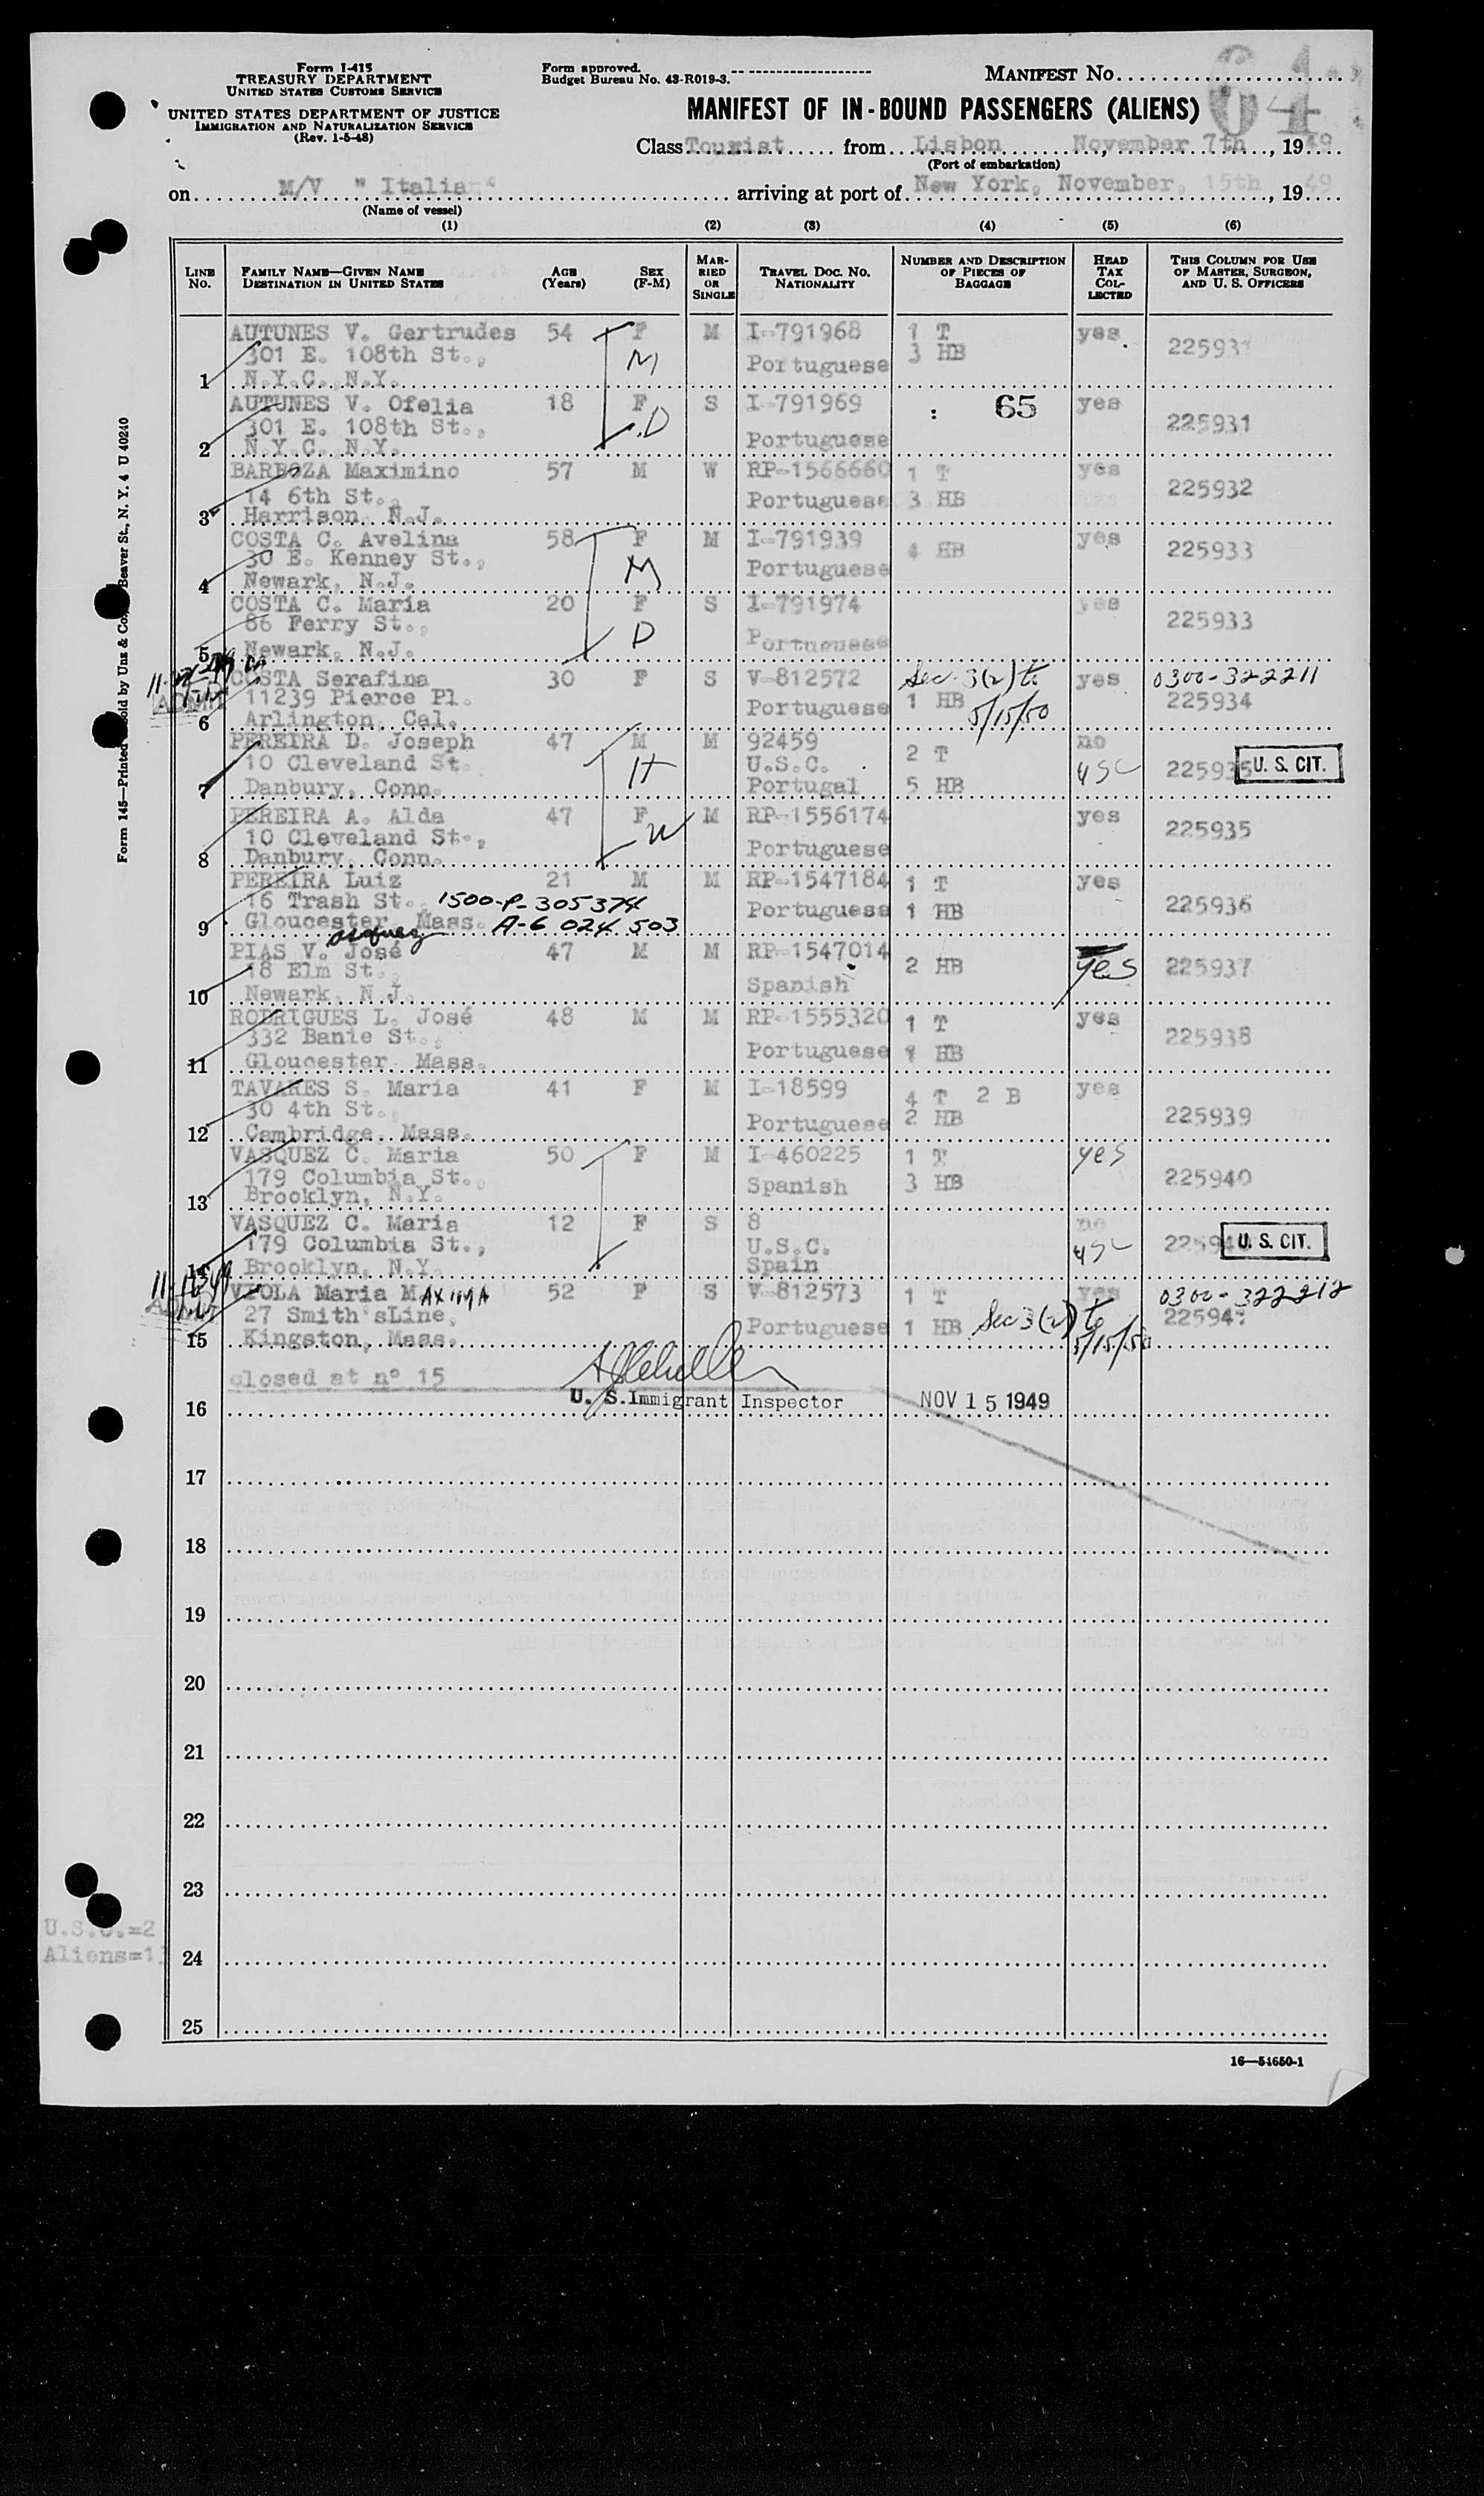 Form I-415
TREASURY DEPARTMENT
UNITED STATES CUSTOMS SERVICE
UNITED STATES DEPARTMENT OF JUSTICE
IMMIGRATION AND NATURALIZATION SERVICE
(Rev. 1-5-48)
Form approved.
Budget Bureau No. 43-R019-3.
MANIFEST NO. 64
MANIFEST OF IN-BOUND PASSENGERS (ALIENS)
Class Tourist from Lisbon November 7th, 1949
(Port of embarkation)
on M/V " Italia" arriving at port of New York, November, 15th, 1949
(Name of vessel)
(1) (2) (3) (4) (5) (6)
LINE NO. FAMILY NAME—GIVEN NAME DESTINATION IN UNITED STATES AGE (Years) SEX (F-M) MARRIED OR SINGLE TRAVEL DOC. NO. NATIONALITY NUMBER AND DESCRIPTION OF PIECES OF BAGGAGE HEAD TAX COLLECTED THIS COLUMN FOR USE OF MASTER, SURGEON, AND U. S. OFFICERS
AUTUNES V. Gertrudes 54 F M I-791968 1 T yes
301 E. 108th St., M Portuguese 3 HB 225931
1 N.Y.C. N.Y.
AUTUNES V. Ofelia 18 F S I-791969 : 65 yes
301 E. 108th St., D Portuguese 225931
2 N.Y.C. N.Y.
BARBOZA Maximino 57 M W RP-1566660 1 T yes
14 6th St. Portuguese 3 HB 225932
3 Harrison, N.J.
COSTA C. Avelina 58 F M I-791939 4 HB yes
30 E. Kenney St., M Portuguese 225933
4 Newark, N.J.
COSTA C. Maria 20 F S I-791974 yes
86 Ferry St., D Portuguese 225933
5 Newark, N.J.
COSTA Serafina 30 F S V-812572 Sec. 3(2) to yes 0300-322211
11239 Pierce Pl. Portuguese 1 HB 5/15/50 225934
6 Arlington, Cal.
PEREIRA D. Joseph 47 M M 92459 2 T no
10 Cleveland St. H U.S.C. USC 225935 U. S. CIT.
7 Danbury, Conn. Portugal 5 HB
PEREIRA A. Alda 47 F M RP-1556174 yes
10 Cleveland St., W Portuguese 225935
8 Danbury, Conn.
PEREIRA Luiz 21 M M RP-1547184 1 T yes
16 Trash St. 1500-P-305374 Portuguese 1 HB 225936
9 Gloucester, Mass. A-6 024 503
asquez
PIAS V. José 47 M M RP-1547014 2 HB yes 225937
18 Elm St. Spanish
10 Newark, N.J.
RODRIGUES L. José 48 M M RP-1555320 1 T yes
332 Banie St., Portuguese 1 HB 225938
11 Gloucester, Mass.
TAVARES S. Maria 41 F M I-18599 4 T 2 B yes
30 4th St. Portuguese 2 HB 225939
12 Cambridge, Mass.
VASQUEZ C. Maria 50 F M I-460225 1 T yes
179 Columbia St., Spanish 3 HB 225940
13 Brooklyn, N.Y.
VASQUEZ C. Maria 12 F S 8 no
179 Columbia St., U.S.C. USC U. S. CIT.
14 Brooklyn, N.Y. Spain
VEOLA Maria MAXIMA 52 F S V-812573 1 T yes 0300-322212
27 Smith'sLine, Portuguese 1 HB Sec 3(2) to 5/15/50
15 Kingston, Mass.
closed at nº 15
16 U. S. Immigrant Inspector NOV 15 1949
17
18
19
20
21
22
23
24
25
U.S.C.=2
16—54650-1